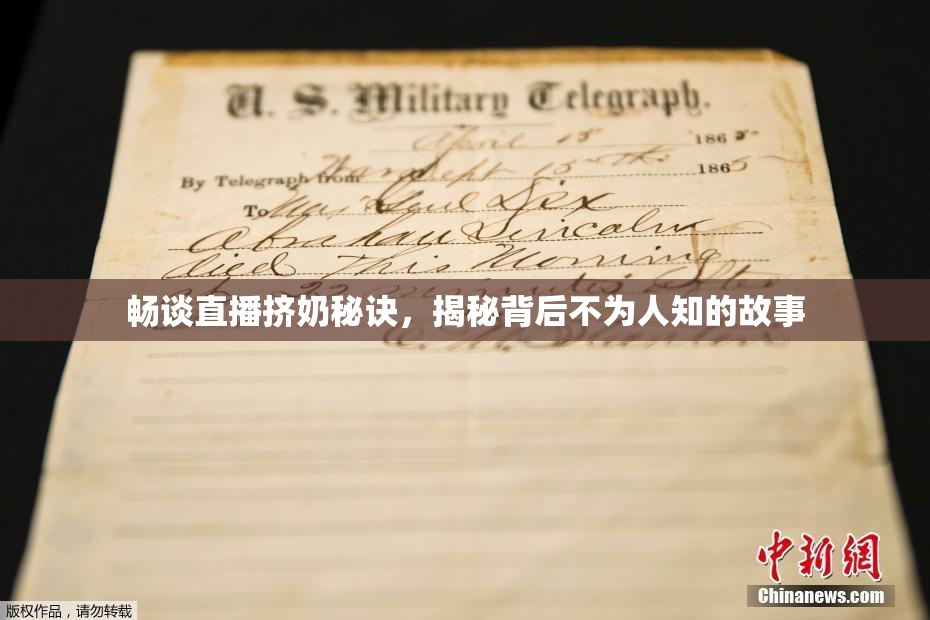 U. S. Military Telegraph.
April 15 1865
By Telegraph from War Dept 15th 1865
To Maj Genl Dix
Abraham Lincoln
died This Morning
at 22 minutes after
畅谈直播挤奶秘诀，揭秘背后不为人知的故事
E. M. Stanton
中新网
Chinanews.com
版权作品，请勿转载